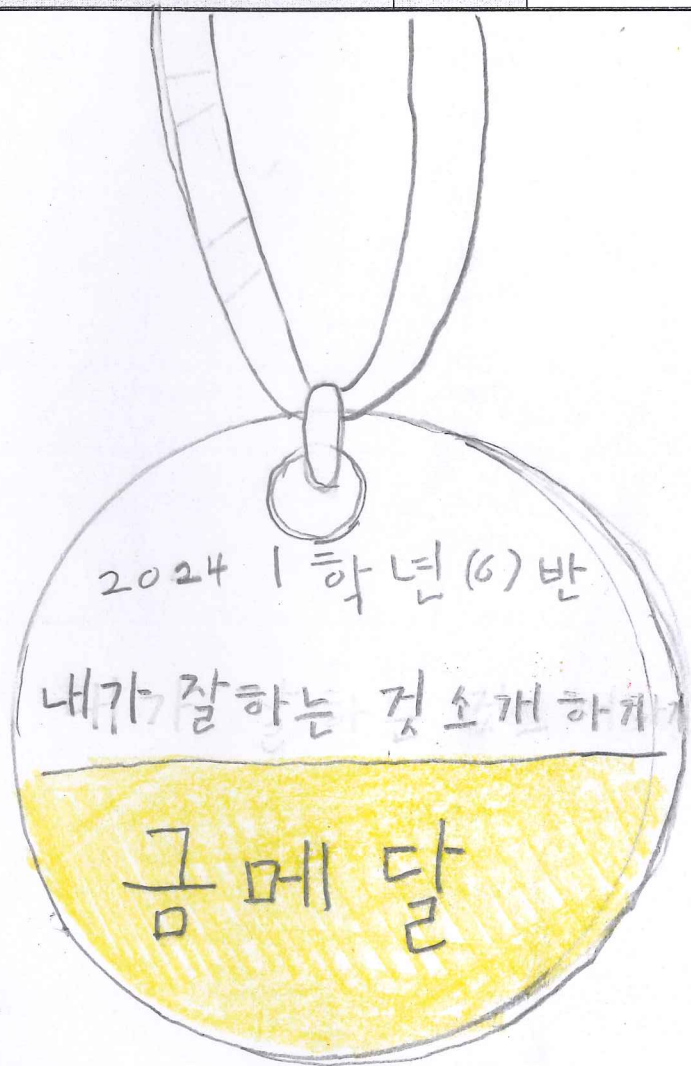 2024 1학년 (6) 반
내가 잘하는 것 소개 하기
금메달